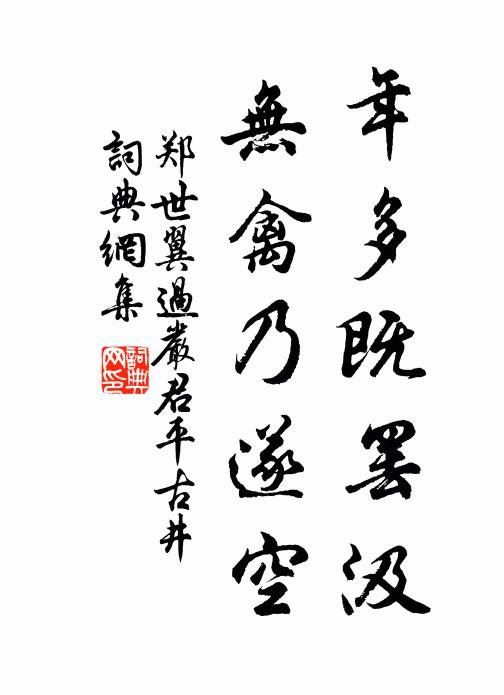 年多既罢汲
無禽乃遂空
郑世翼過嚴君平古井
詞典網集
詞典网印